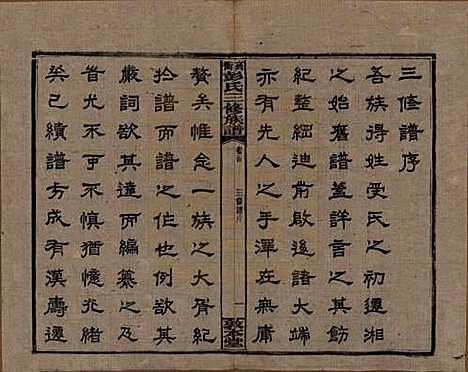 三修譜序
吾族得姓受氏之初遷湘
之始舊譜蓋詳言之其飭
紀整綱迪前啟後諸大端
亦有先人之手澤在無庸
彭氏三修族譜
三修譜序
一
敦本堂
贅矣惟念一族之大胥紀
於譜而譜之作也例欲其
嚴詞欲其達而編纂之及
者尤不可不慎猶憶光緒
癸巳續譜方成有漢壽遷